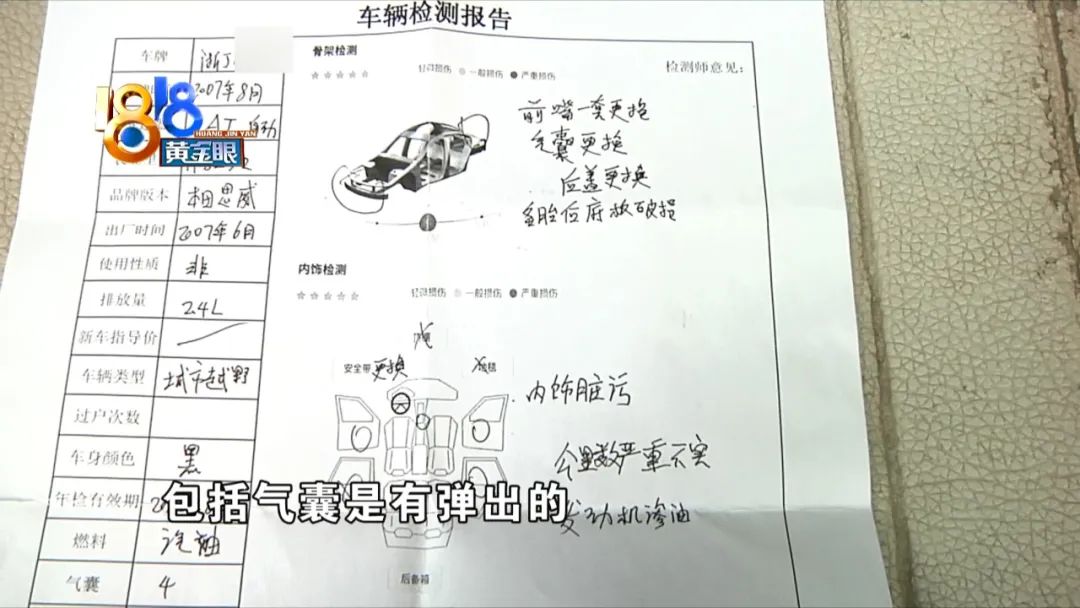 车辆检测报告
车牌 浙J
2007年8月
AT 自动
1818
HUANG JIN YAN
黄金眼
品牌版本 本田思威
出厂时间 2007年6月
使用性质 非
排放量 2.4L
新车指导价
车辆类型 城市越野
过户次数
车身颜色 黑
年检有效期
燃料 汽油
气囊 4
骨架检测
☆☆☆☆☆ 轻微损伤 一般损伤 严重损伤
检测师意见：
前嘴一套更换
气囊更换
后盖更换
备胎后底板破损
内饰检测
☆☆☆☆☆ 轻微损伤 一般损伤 严重损伤
安全带 更换
内饰脏污
公里数严重不实
发动机渗油
后备箱
包括气囊是有弹出的